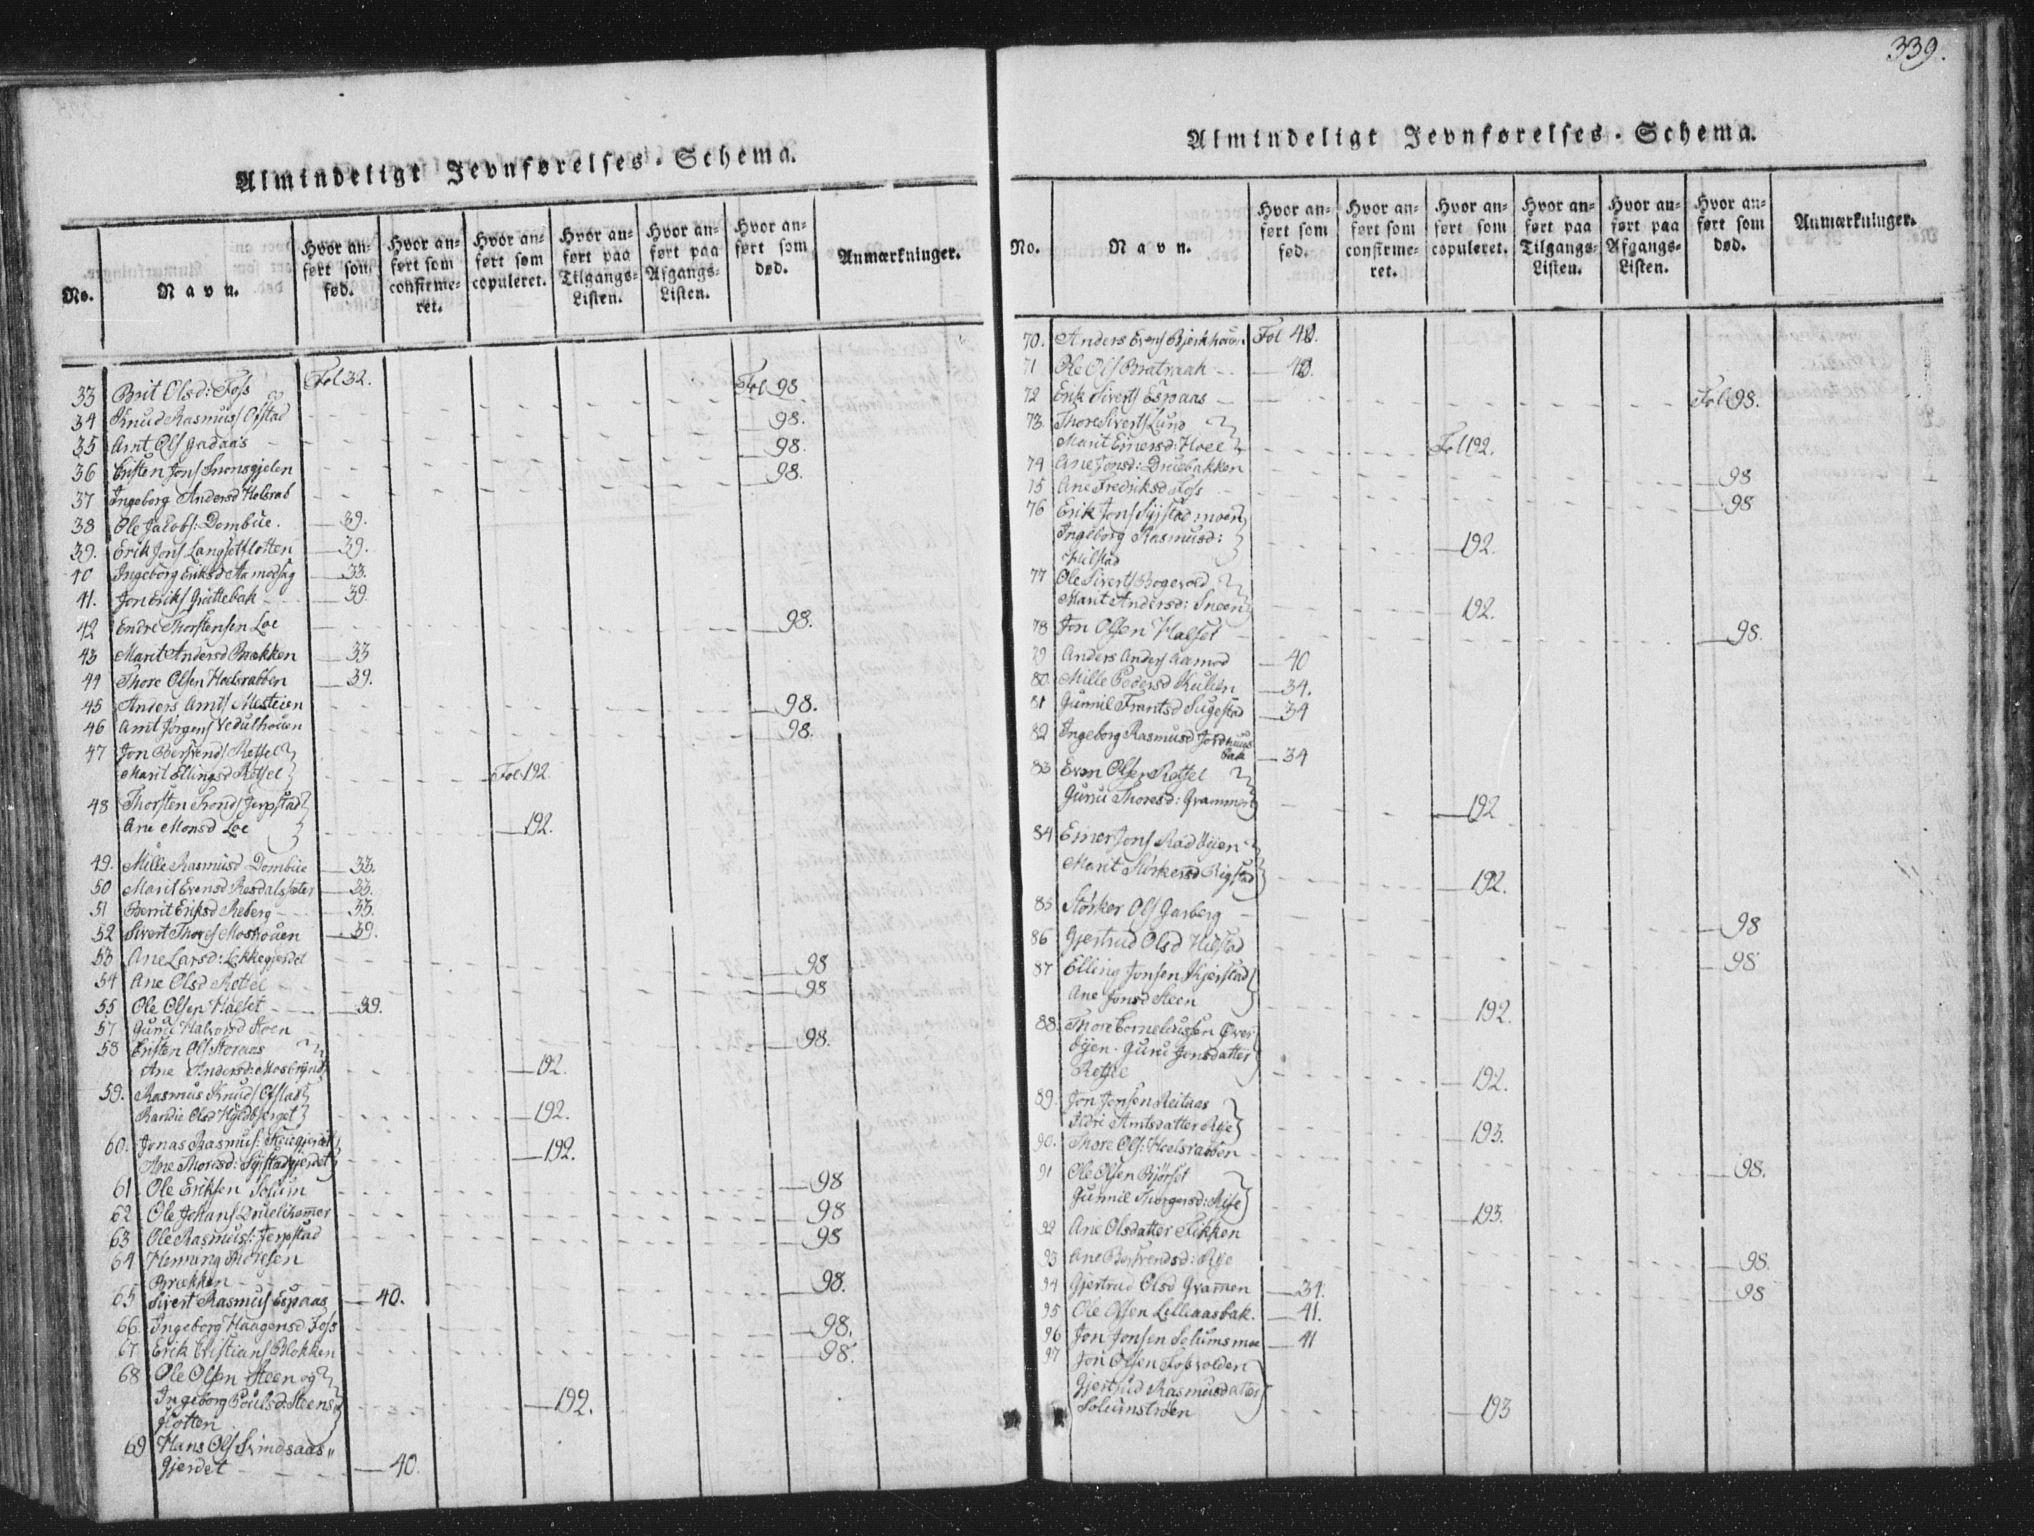 339.
Almindeligt Jevnførelses-Schema.
No. Navn. Hvor anført som fød. Hvor anført som confirmeret. Hvor anført som copuleret. Hvor anført paa Tilgangs-Listen. Hvor anført paa Afgangs-Listen. Hvor anført som død. Anmærkninger.
33 Brit Olsd: Foss Fol 32.
Fol 98
34 Knud Rasmus/ Ofstad 98.
35 Arnt Ols/ Gadaas 98.
36 Cristen Jons/ 98.
37 Ingeborg Andersd Helsrab
38 Ole Jacobs: Dombue. 39.
39. Erik Jons/ Langsetflotten 39.
40 Ingeborg Eriksd Aamodsag 33.
41. Jon Eriks/ Grøttebak 39.
42 Endre Thorstensen Loe 98.
43 Marit Andersd Brækken 33
44 Thore Olsen Hoelsrabben 39.
45 Anders Arnts/ Misteien 98.
46 Arnt Jørgens/ Vedulhouen 98.
47 Jon Bersvends/ Retsel
Marit Ellingsd Retsel Fol 192
48 Thorsten Tronds/ Jerpstad
Ane Monsd Loe 192.
49. Mille Rasmusd Dombue 33.
50 Marit Evensd Resdalssæter 33.
51 Berrit Eriksd Reberg 33.
52 Sivert Thores/ Moshouen 39.
53 Ane Larsd: Lykkegjerdet 98
54 Ane Olsd Rettel 98
55 Ole Olsen Halset 39.
57 Guru Halvorsd Steen 98.
58 Cristen Ols/ Storaas
Ane Andersd: Mosbrynd 192.
59. Rasmus Knuds/ Ofstad
Randie Olsd Hyldbjerget 192.
60. Jonas Rasmus/:
Ane Thoresd: Systadgjerdet 192.
61 Ole Eriksen Solum 98
62 Ole Johans/ Druelihamer 98
63 Ole Rasmus/: Jerpstad 98
64 Henning Thoresen
Brækken 98.
65 Sivert Rasmus/ Espaas 40.
66 Ingeborg Haagensd Foss 98.
67 Erik Cristians/ Blokken 98.
68 Ole Olsen Steen og
Ingeborg Poulsd: Steens
flotten 192.
69 Hans Ols/ Svindsaas
gjerdet 40.
Almindeligt Jevnførelses-Schema.
No. Navn. Hvor anført som fød. Hvor anført som confirmeret. Hvor anført som copuleret. Hvor anført paa Tilgangs-Listen. Hvor anført paa Afgangs-Listen. Hvor anført som død. Anmærkninger.
70. Anders Evens/ Bjerkhouen Fol 40.
71 Ole Ols/ Bratraak 40.
72 Erik Siverts/ Espaas Fol 98.
73. Thore Siverts/ Lund
Marit Einersd: Hoel Fol 192.
74 Ane Jonsd: Druebakken 98
75 Ane Fredriksd Foss 98
76 Erik Jons/ Systad moen
Ingeborg Rasmusd:
Hilstad 192.
77 Ole Siverts/ Bogevold
Marit Andersd: Sneen 192.
78 Jon Olsen Halset 98.
79 Anders Anders/ Aamod 40
80. Mille Pedersd Kulien 34.
81 Gunnil Frantsd Sugestad 34
82 Ingeborg Rasmusd Jordhuus
bak 34
83 Even Olsen Retsel
Guru Thoresd: Grammen 192
84 Einer Jons/ Rad Øyen
Marit Størkersd Rigstad 192.
85 Størker Ols/ Garberg 98
86 Gjertrud Olsd Hilstad 98
87 Elling Jonsen Kjerstad
Ane Jonsd Steen 192.
88. Thore Corneliussen Over
Øyen. Guru Jonsdatter
Retsle 192.
89 Jon Jonsen Reitaas
Ildri Arntsdatter Rye 193.
90. Thore Ols/: Hoelsrabben 98.
91 Ole Olsen Bjørset
Gunnil Thorgersd: Rye 193.
92 Ane Olsdatter Flikken 98.
93 Ane Bersvendsd: Rye 98
94 Gjertrud Olsd Gramen 34.
95 Ole Olsen Lilliaasbak. 41.
96 Jon Jonsen Solumsmoe 41
97 Jon Olsen Fossvolden
Gjertrud Rasmusdatter
Solumstrøen 193